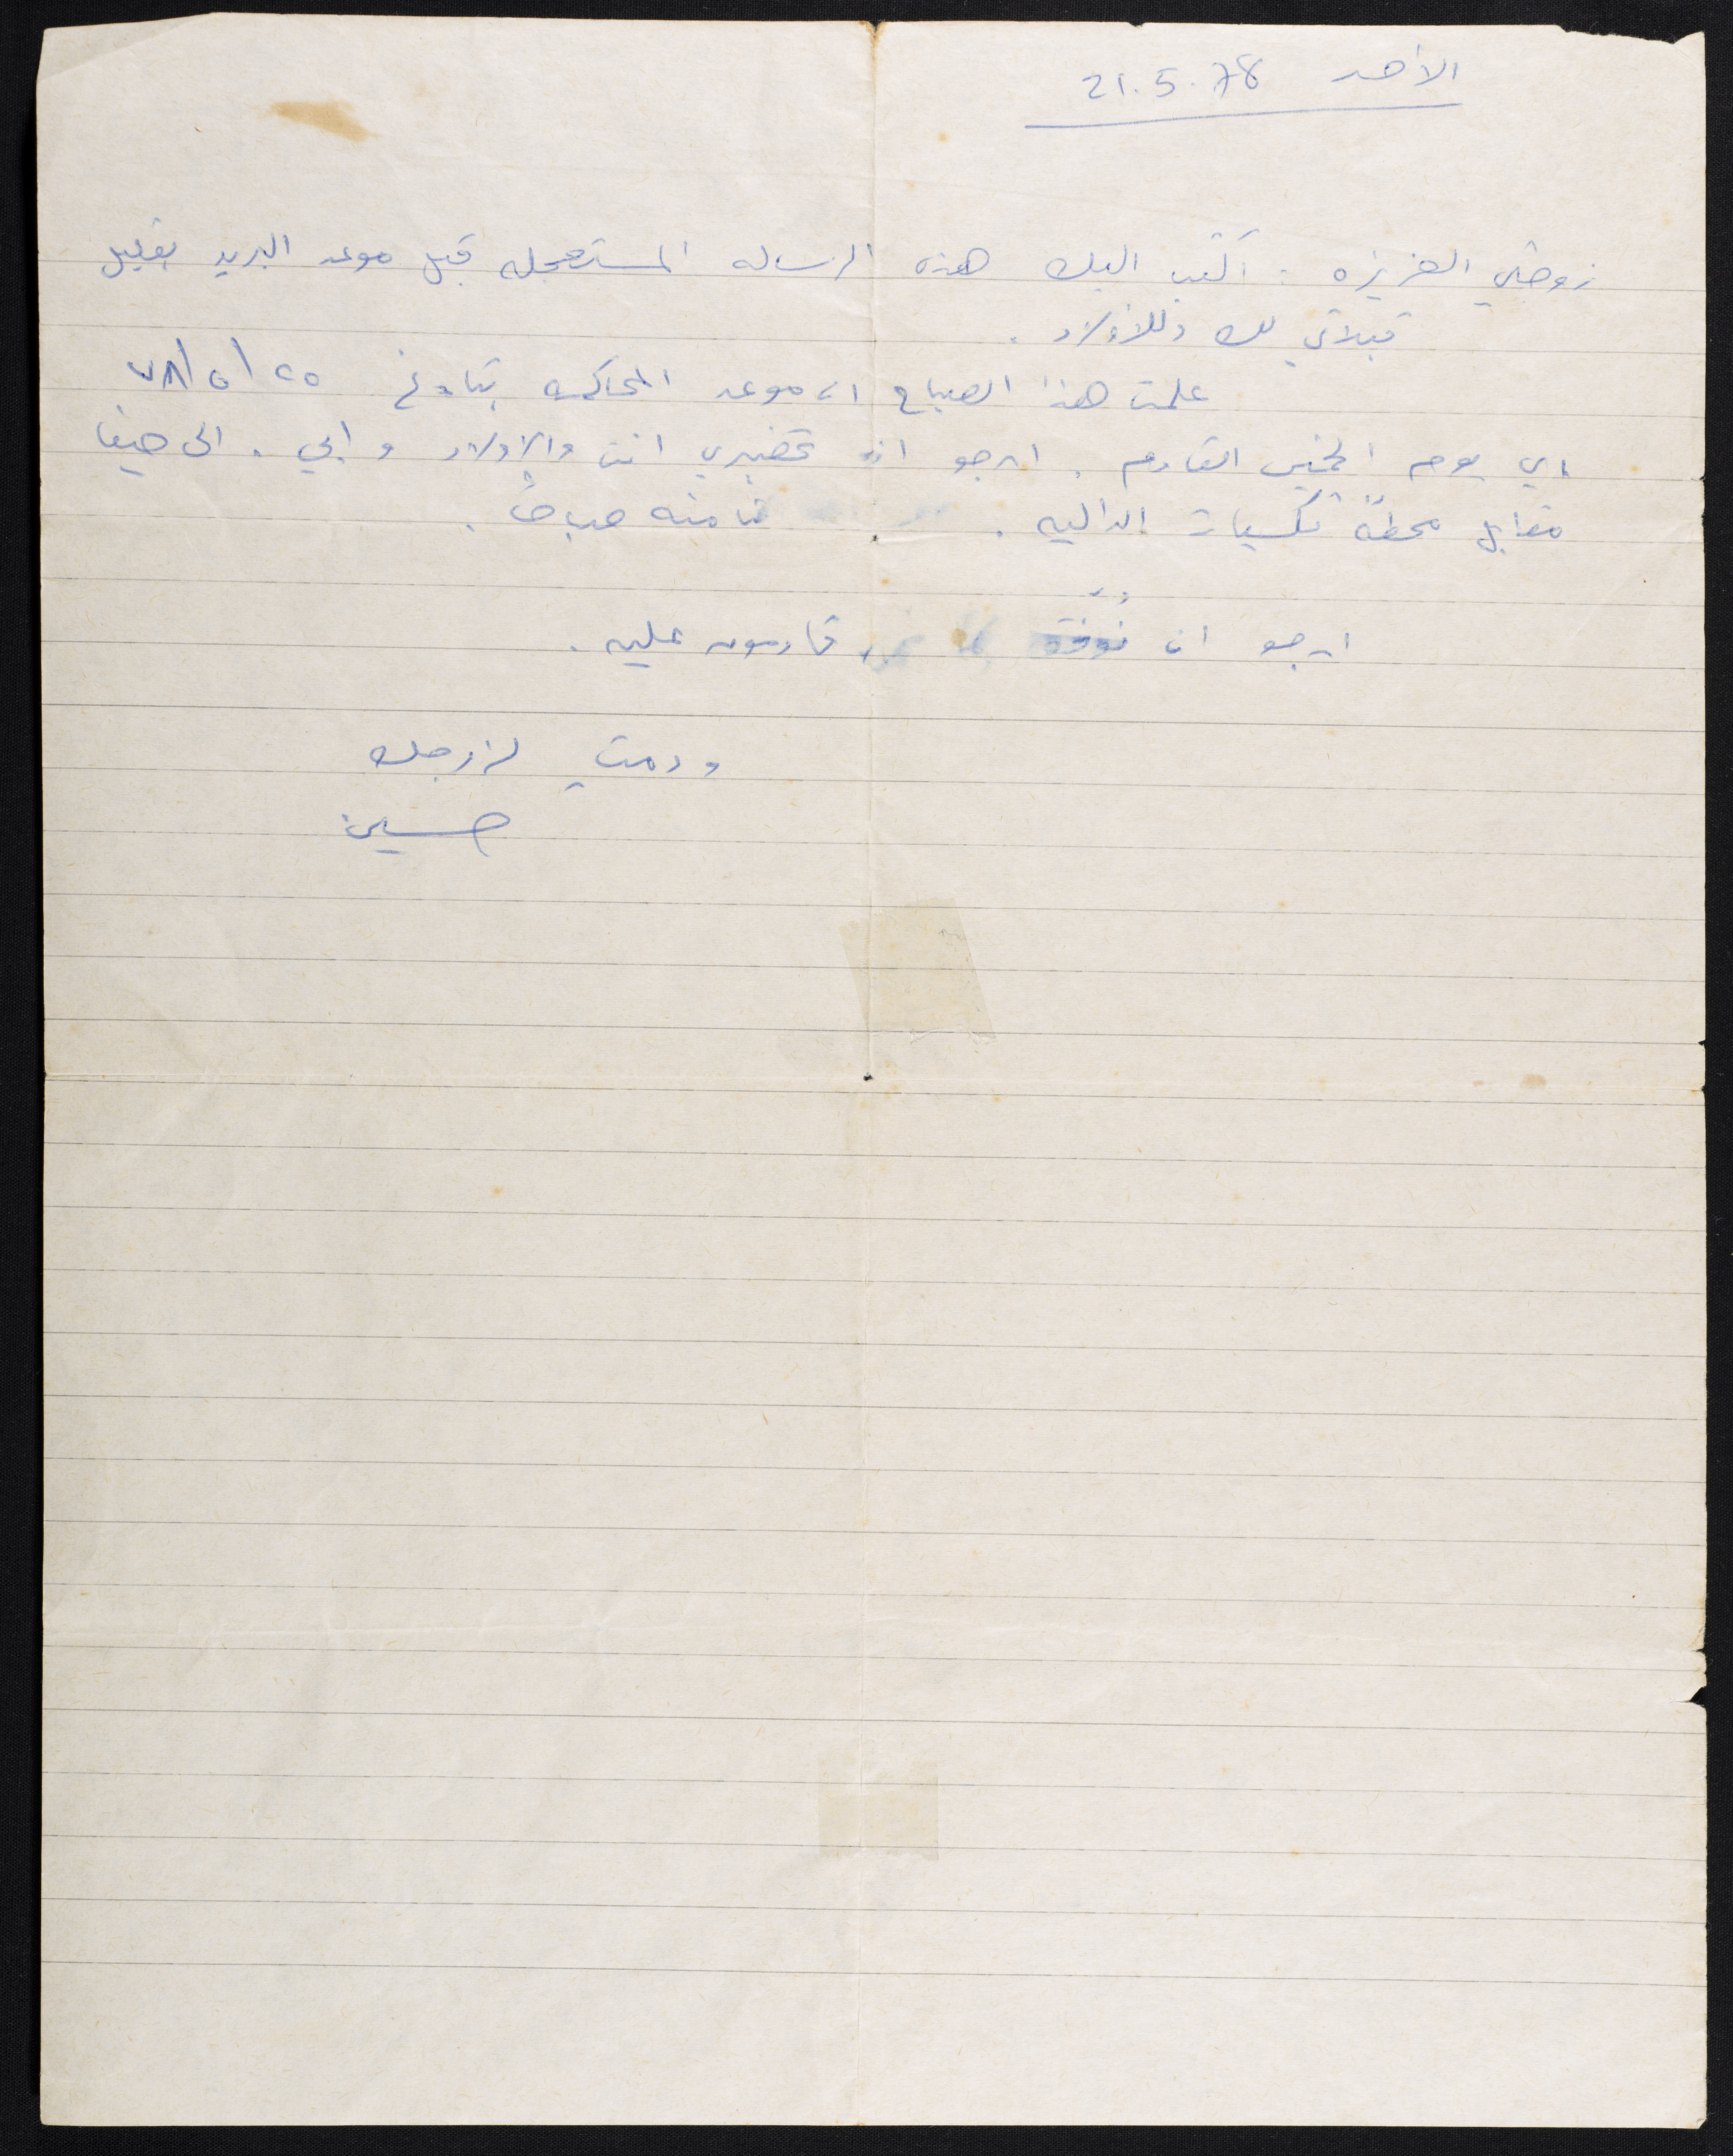 الأحد 21.5.78
زوجتي العزيزه : اكتب اليك هذه الرساله المستعجله قبل موعد البريد بقليل
قبلاتي لك وللأولاد .
علمت هذا الصباح ان موعد المحاكمه بتاريخ ٢٥/٥/٧٨
اي يوم الخميس القادم . ارجو ان تحضري انت والاولاد وابي . الى حيفا
مقابل محطة تكسيات الداليه . ثامنه صباحاً .
ارجو ان نُوفّق قادمون عليه .
ودمتِ لزوجك
حسين